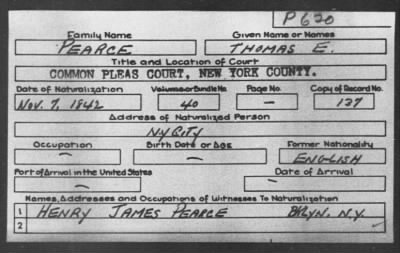 P620
Family Name Given Name or Names
PEARCE THOMAS E.
Title and Location of Court
COMMON PLEAS COURT, NEW YORK COUNTY.
Date of Naturalization Volume or Bundle No. Page No. Copy of Record No.
Nov. 7, 1842 40 — 137
Address of Naturalized Person
NYCITY
Occupation Birth Date or Age Former Nationality
— — ENGLISH
Port of Arrival in the United States Date of Arrival
— —
Names, Addresses and Occupations of Witnesses To Naturalization
1 HENRY JAMES PEARCE BKLYN. N.Y.
2